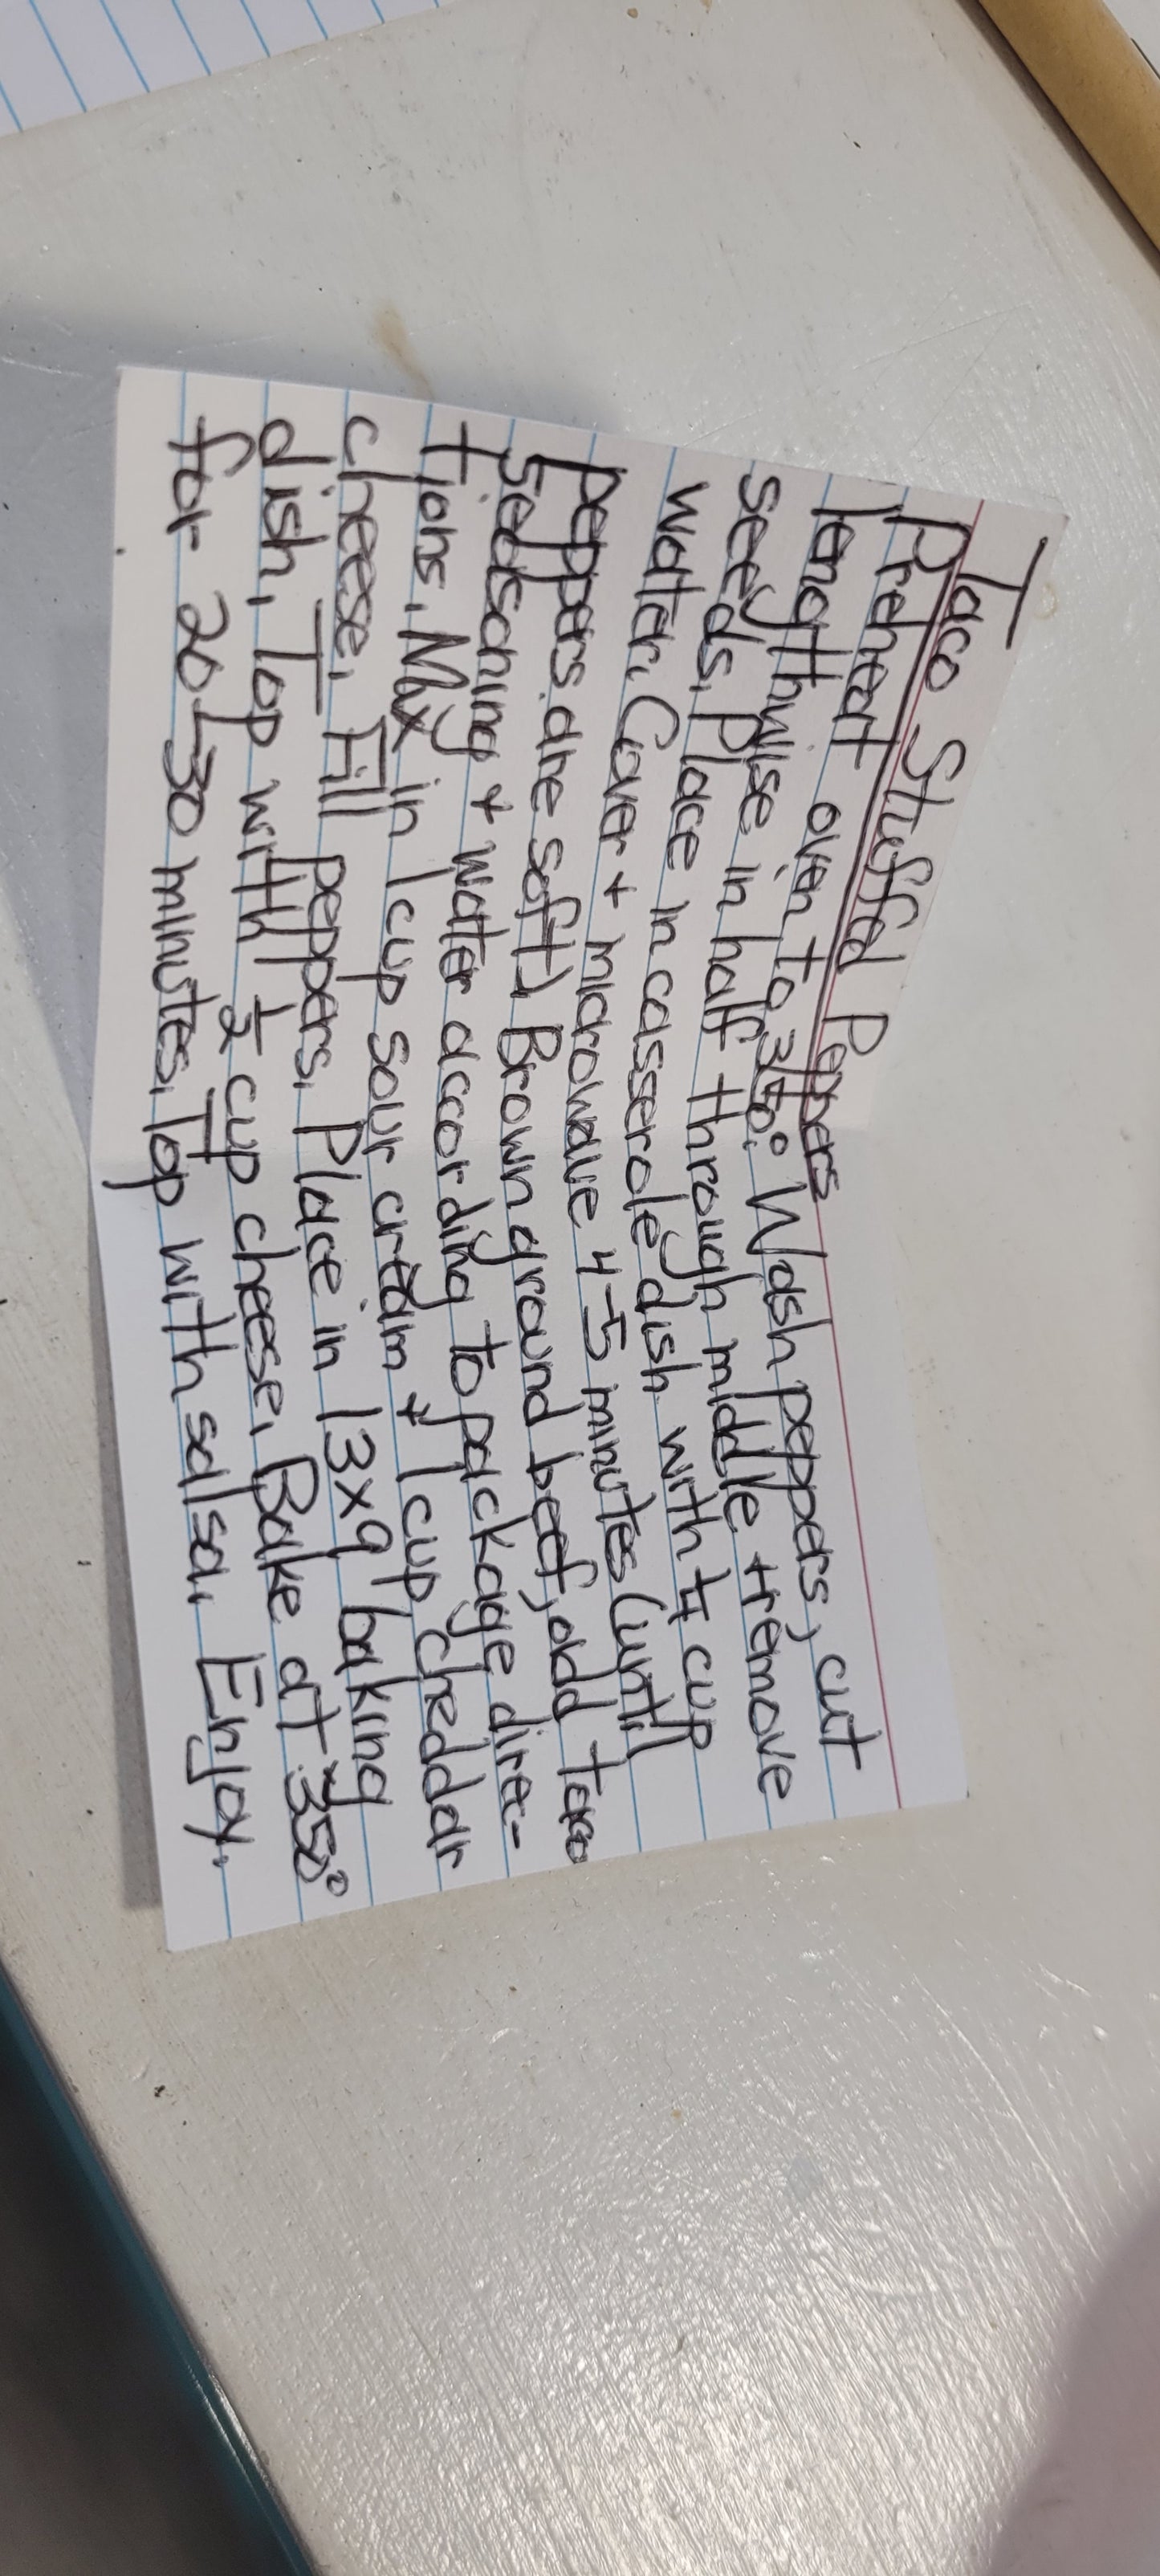 Taco Stuffed Peppers
Preheat oven to 350°. Wash peppers, cut
lengthwise in half through middle + remove
seeds. Place in casserole dish with 1/4 cup
water. Cover + microwave 4-5 minutes (until
peppers are soft). Brown ground beef, add taco
seasoning + water according to package direc-
tions. Mix in 1 cup sour cream + 1 cup cheddar
cheese. Fill peppers. Place in 13x9 baking
dish. Top with 1/2 cup cheese. Bake at 350°
for 20-30 minutes. Top with salsa. Enjoy.